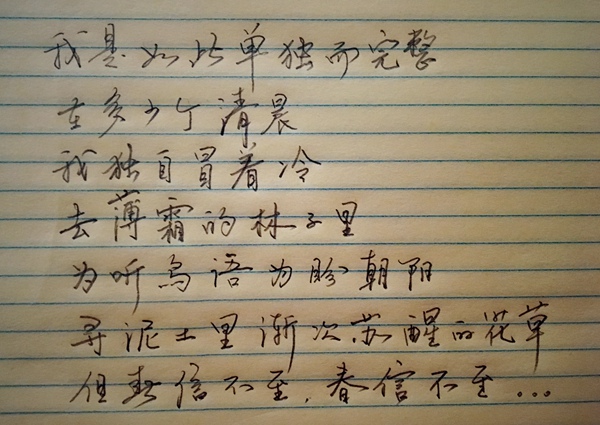 我是如此单独而完整
在多少个清晨
我独自冒着冷
去薄霜的林子里
为听鸟语为盼朝阳
寻泥土里渐次苏醒的花草
但春信不至，春信不至...